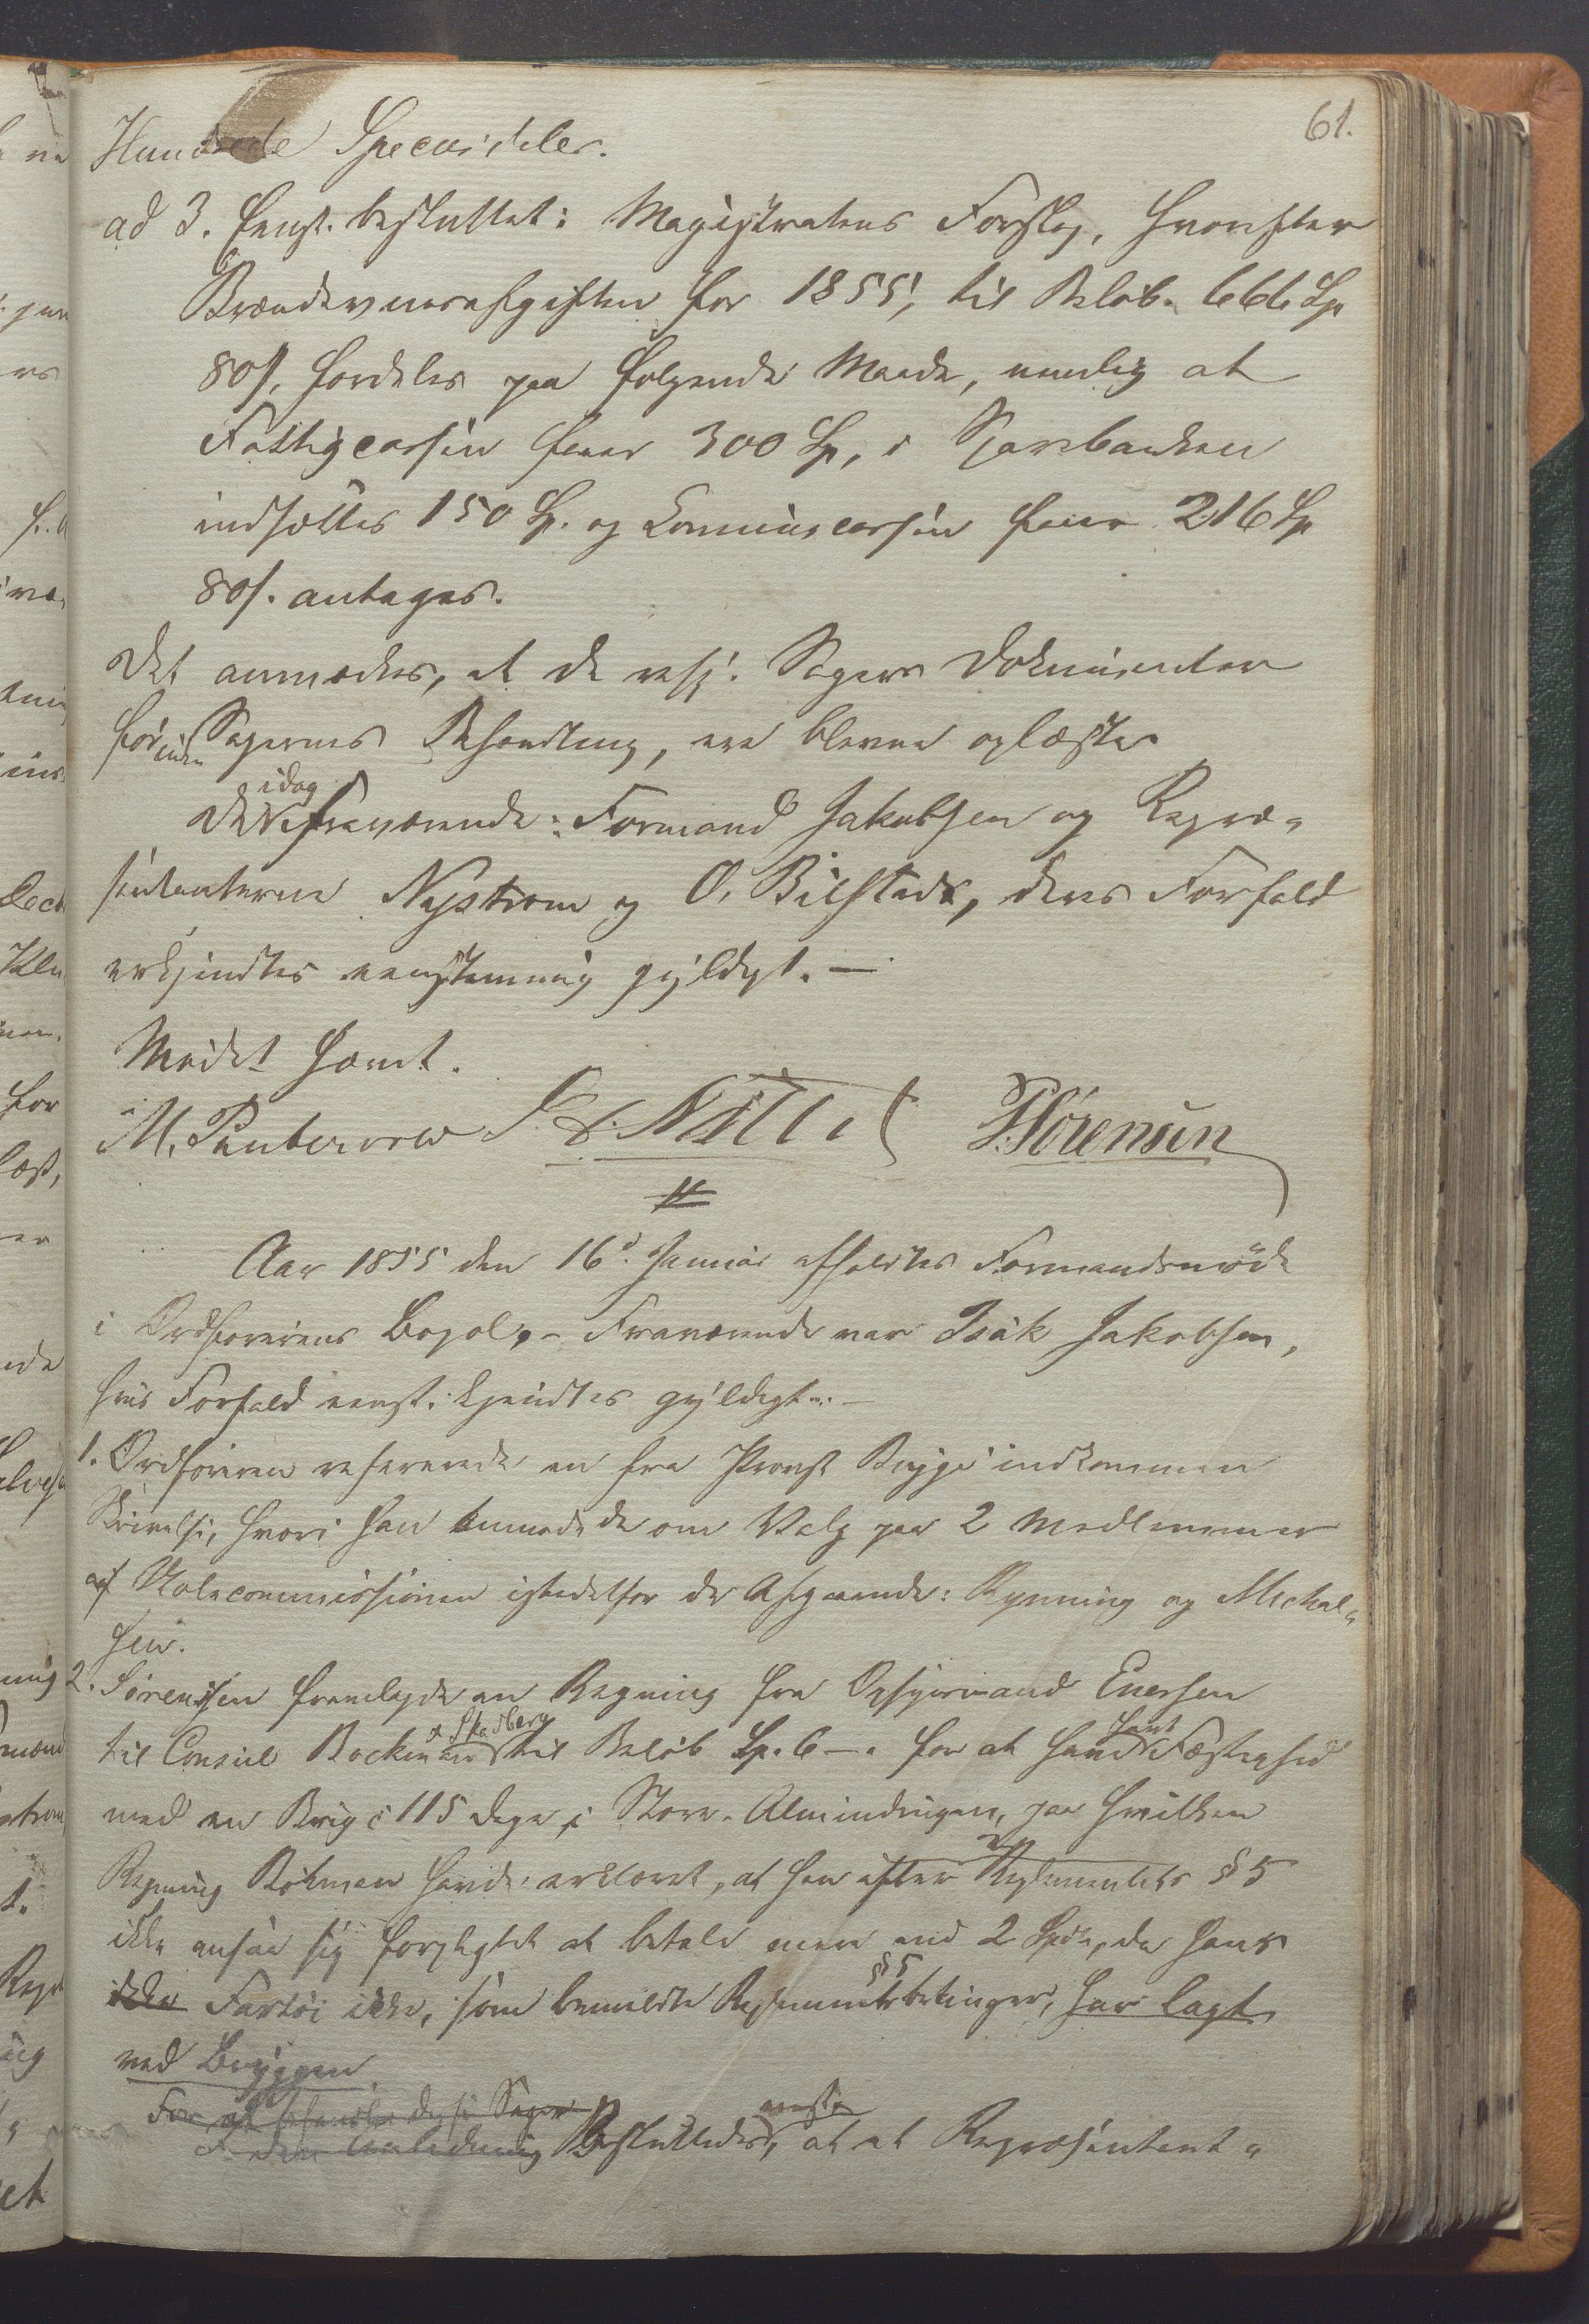 61.
Hundrede Speciesdaler.
ad 3. Eenst. besluttet: Magistratens Forslag, hvorefter
Brændeviinsafgiften for 1855, til Beløb. 666 Sp
80 s, fordeles paa følgende Maade, nemlig at
Fattigcassen faaer 300 Sp, i Sparebanken
indsættes 150 Sp. og Communecassen faaer 216 Sp
80 s. antages.
Det anmærkes, at de resp. Sagers Dokumenter
forinden Sagernes Behandling, ere blevne oplæste
idag
Fraværende: Formand Jakobsen og Repræ-
sentanterne Nystrøm og O. Bilstad, deres Forfald
erkjendtes eenstemmig gyldigt. —
Mødet hævet.
M. P. Sørensen
Aar 1855 den 16d Januar afholdtes Formandsmøde
i Ordførerens Bopæl, - Fraværende var Isak Jakobsen,
hvis Forfald eenst. kjendtes gyldigt. —
1. Ordføreren refererede en fra Provst Rygge indkommen
Skrivelse, hvori han anmodede om Valg paa 2 Medlemmer
af Skolecommissionen istedetfor de Afgaaende: Rynning og Michal-
sen.
2. Sørensen fremlagde en Regning fra Opsynsmand Enersen
til Consul Bøckman & Skadberg til Beløb Sp. 6 —. for at have havt Fæstighed
med en Brig i 115 Dage i Store-Almindingen, paa hvilken
Regning Bøkman havde erklæret, at han efter Reglementets § 5
ikke ansaa sig forpligtet at betale mere end 2 Spd, da hans
ikke Fartøi ikke, som bemeldte Reglements § 5 betinger, har lagt
ved Bryggen.
For at behandle disse Sager
I den Anledning Besluttedes eenst, at et Repræsentant-